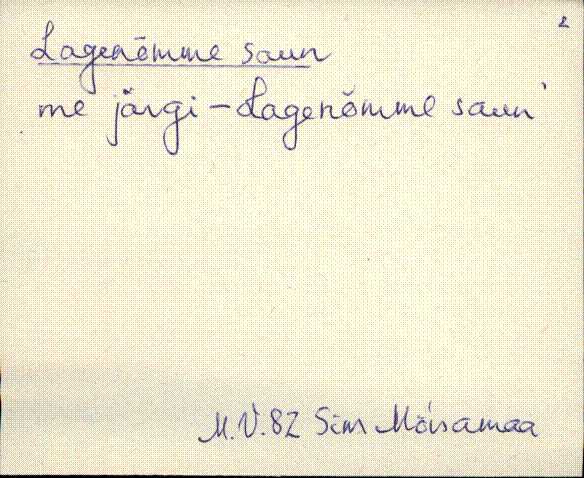 2
Lagenõmme saun
me järgi – Lagenõmme saun'
M.V.82 Sim Mõisamaa